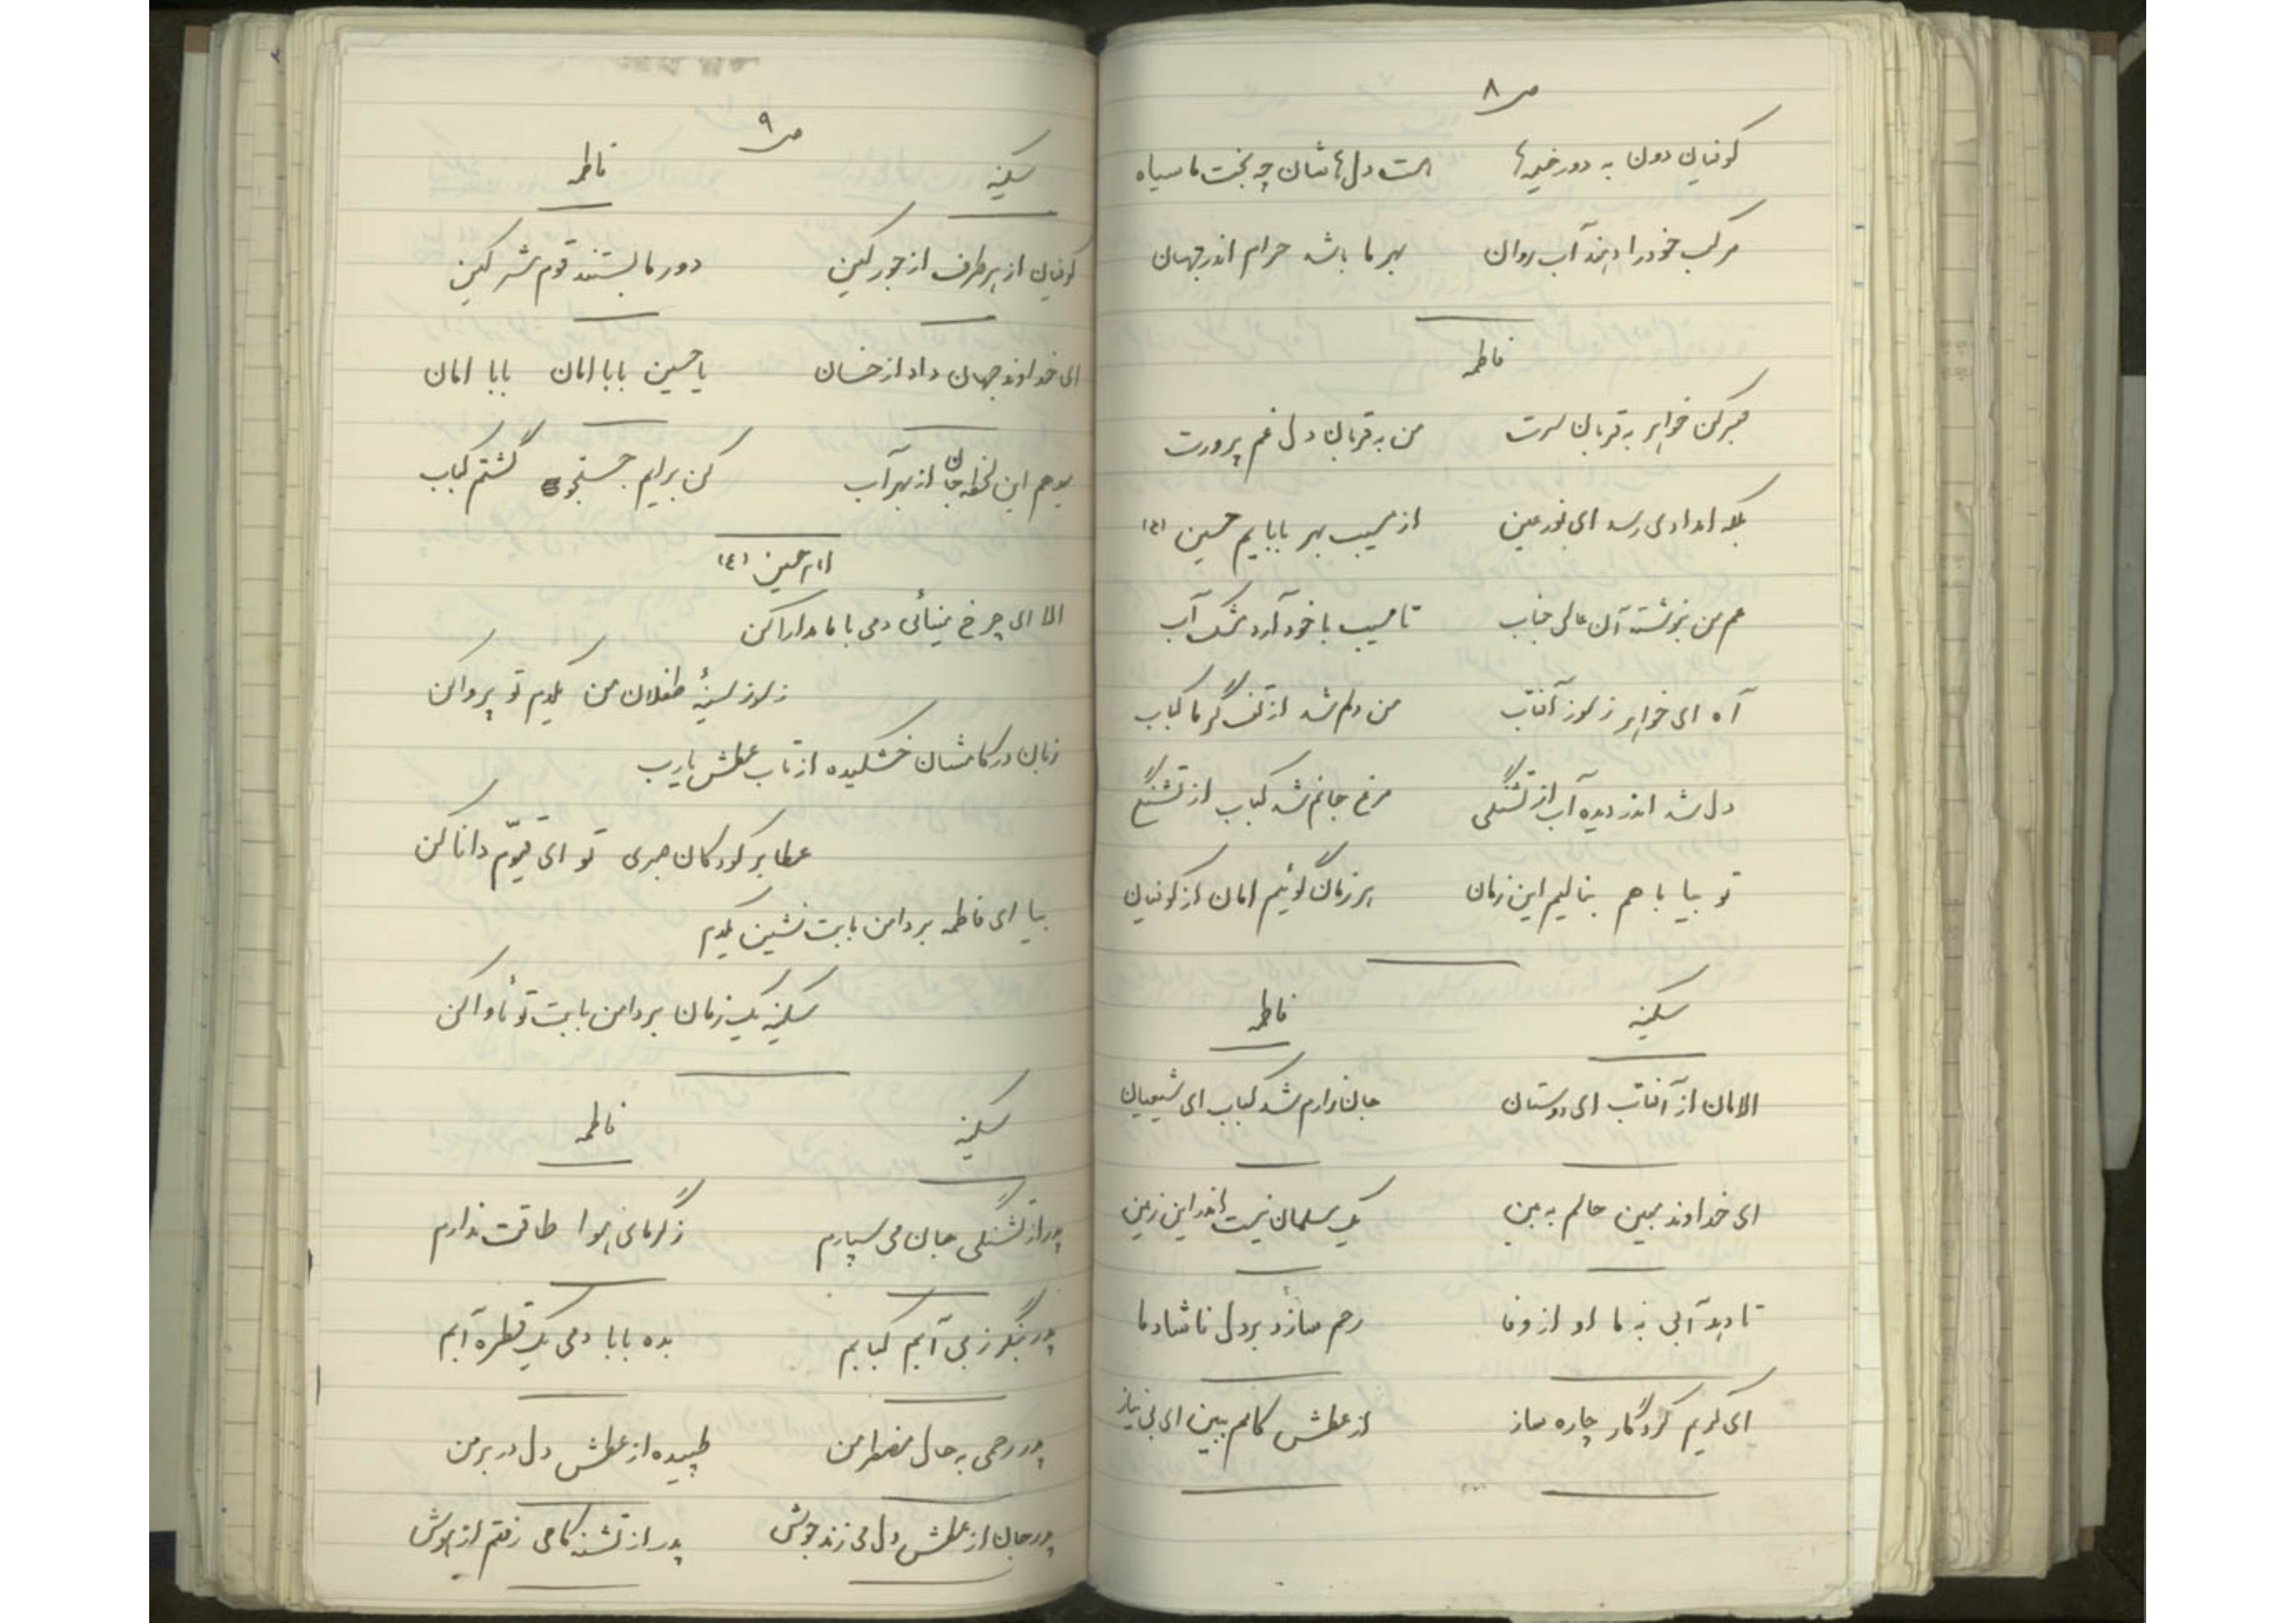 ص ۸
کوفیان دون به دور خیمه‌ها    است دل‌هاشان چه بخت ما سیاه
مرکب خود را دهند آب روان    بهر ما باشد حرام اندر جهان
فاطمه
صبر کن خواهر به قربان سرت    من به قربان دل غم پرورت
بلکه امدادی رسد ای نور عین    از حبیب بهر بابایم حسین (ع)
عم من بنوشته آن عالی جناب    تا حبیب با خود آرد مشک آب
آه ای خواهر ز سوز آفتاب    من دلم شد از تف گرما کباب
دل شد اندر دیده آب از تشنگی    مرغ جانم شد کباب از تشنگی
تو بیا با هم بنالیم این زمان    هر زمان گوئیم امان از کوفیان
سکینه    فاطمه
الامان از آفتاب ای دوستان    جان ندارم شد کباب ای شیعیان
ای خداوند مبین حالم به بین    یک مسلمان نیست اندر این زمین
تا دهد آبی به ما او از وفا    رحم سازد بر دل ناشاد ما
ای کریم کردگار چاره ساز    از عطش کامم ببین ای بی نیاز
ص ۹
سکینه    فاطمه
کوفیان از هر طرف از جور کین    دور ما بستند قوم مشرکین
ای خداوند جهان داد از خسان    یا حسین بابا امان بابا امان
این لحظه جان از بهر آب    کن برایم جستجو گشتم کباب
امام حسین (ع)
الا ای چرخ مینائی دمی با ما مدارا کن
ز سوز سینهٔ طفلان من یکدم تو پروا کن
زبان در کامشان خشکیده از تاب عطش یارب
عطا بر کودکان صبری تو ای قیوّم دانا کن
بیا ای فاطمه بر دامن بابت نشین یکدم
سکینه یک زمان بر دامن بابت تو مأوا کن
سکینه    فاطمه
پدر از تشنگی جان می سپارم    ز گرمای هوا طاقت ندارم
پدر بنگر ز بی آبم کبابم    بده بابا دمی یک قطره آبم
پدر رحمی به حال مضطر من    طپیده از عطش دل در بر من
پدر جان از عطش دل می زند جوش    پدر از تشنه کامی رفتم از هوش